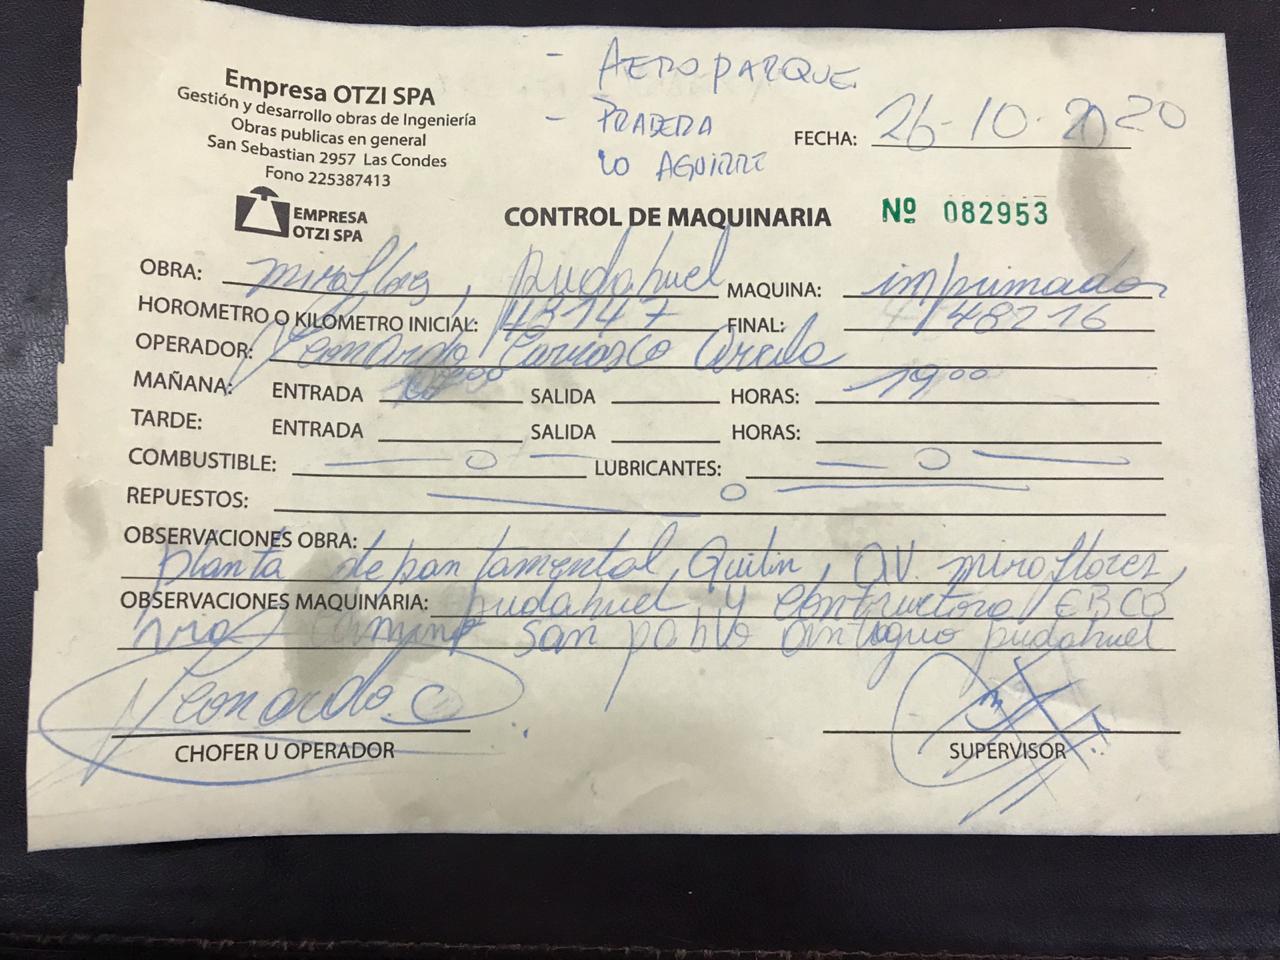 - AEROPARQUE
- PRADERA
LO AGUIRRE
Empresa OTZI SPA
Gestión y desarrollo obras de Ingeniería
Obras publicas en general
San Sebastian 2957 Las Condes
Fono 225387413
EMPRESA
OTZI SPA
FECHA: 26-10-2020
CONTROL DE MAQUINARIA Nº 082953
OBRA: miraflores, pudahuel MAQUINA: imprimador
HOROMETRO O KILOMETRO INICIAL: FINAL: 48216
OPERADOR: Leonardo Carrasco
MAÑANA: ENTRADA SALIDA HORAS: 19⁰⁰
TARDE: ENTRADA SALIDA HORAS:
COMBUSTIBLE: — 0 — LUBRICANTES: — 0 —
REPUESTOS: — 0 —
OBSERVACIONES OBRA:
planta departamental, Quilin, AV. miraflores,
OBSERVACIONES MAQUINARIA: pudahuel y constructora EBCO
camino san pablo antiguo pudahuel
Leonardo C
CHOFER U OPERADOR
SUPERVISOR